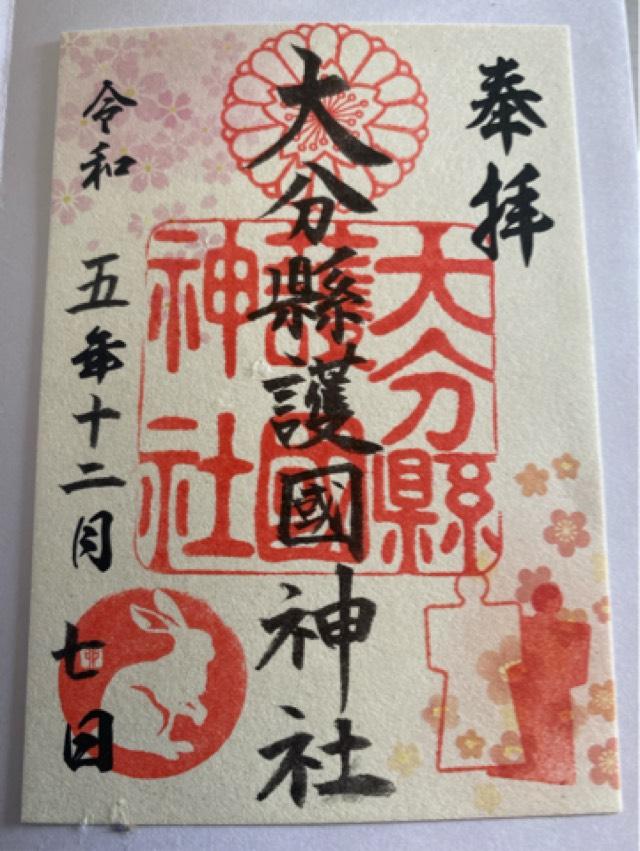 奉拝
大分縣護國神社
大分縣
護國
神社
令和五年十二月七日
卯